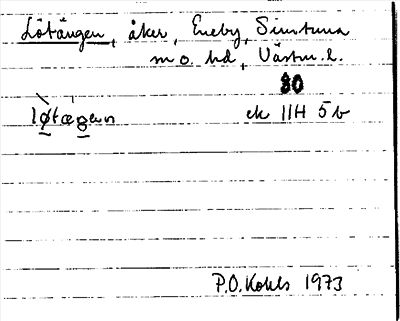 Lötängen, åker, Eneby, Simtuna
sn o. hd, Västm. l.
80
løtægen
ek 11H 5b
P.O. Kohls 1973